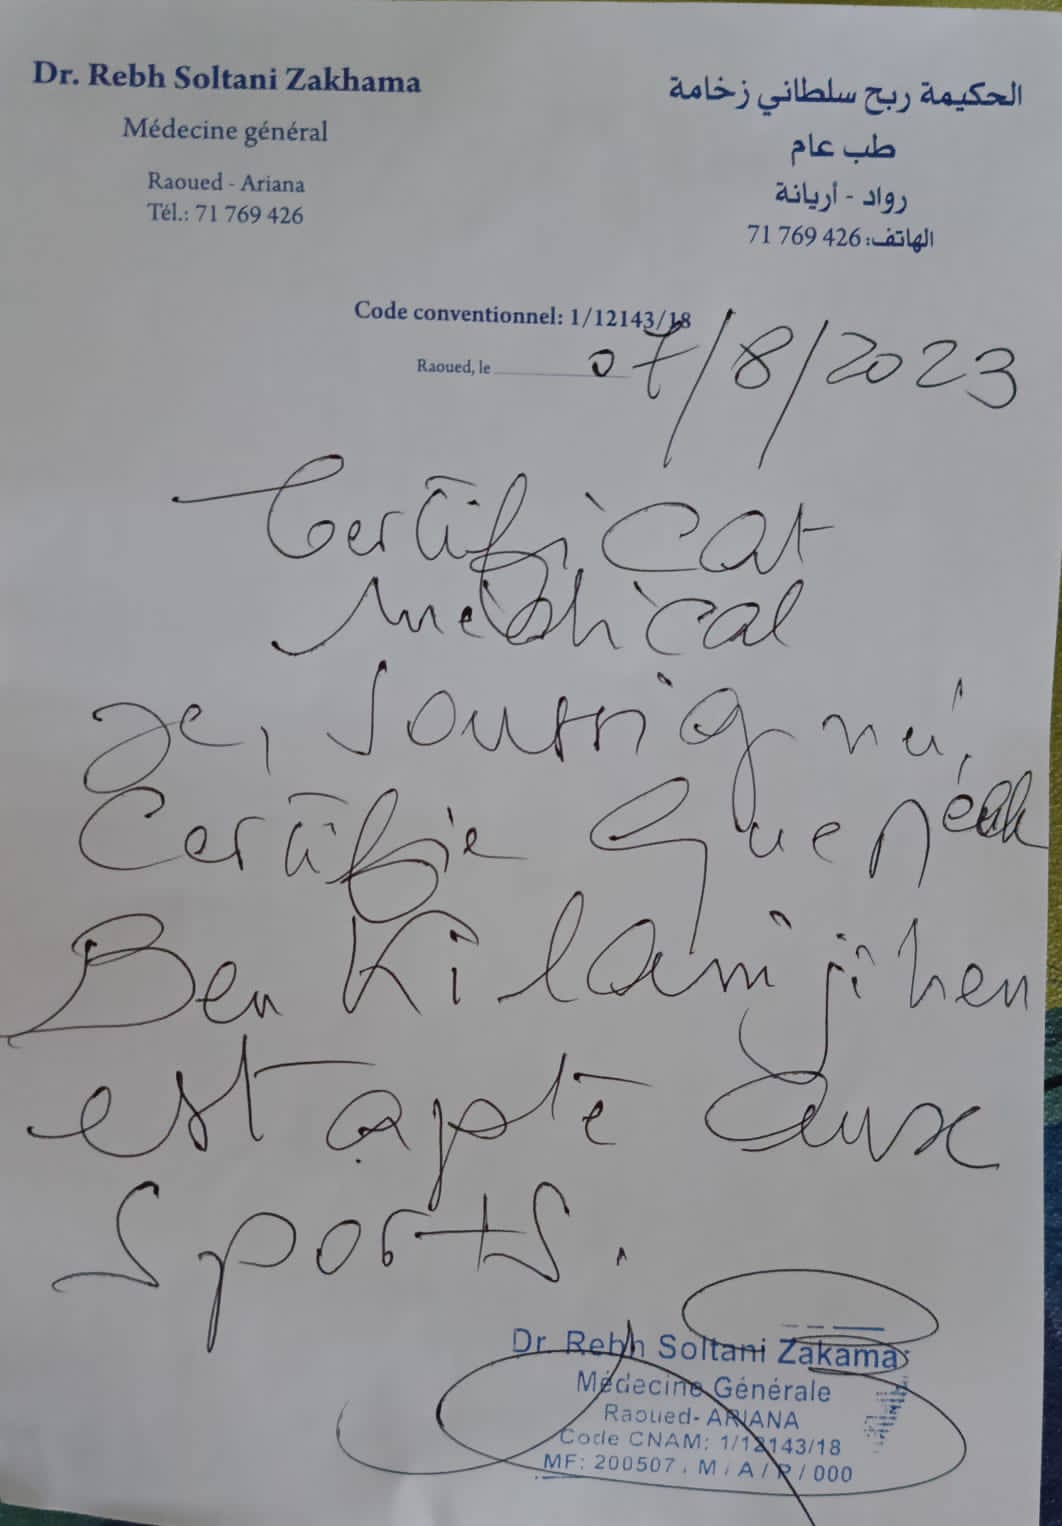 Dr. Rebh Soltani Zakhama
Médecine général
Raoued - Ariana
Tél.: 71 769 426
الحكيمة ربح سلطاني زخامة
طب عام
رواد - أريانة
الهاتف: 426 769 71
Code conventionnel: 1/12143/18
Raoued, le 07/8/2023
Certificat
medical
Je, soussigné,
Certifie que
Ben Kilani jihen
est apte aux
Sports.
Dr. Rebh Soltani Zakama
Médecine Générale
Raoued- ARIANA
Code CNAM: 1/12143/18
MF: 200507 . M / A / P / 000